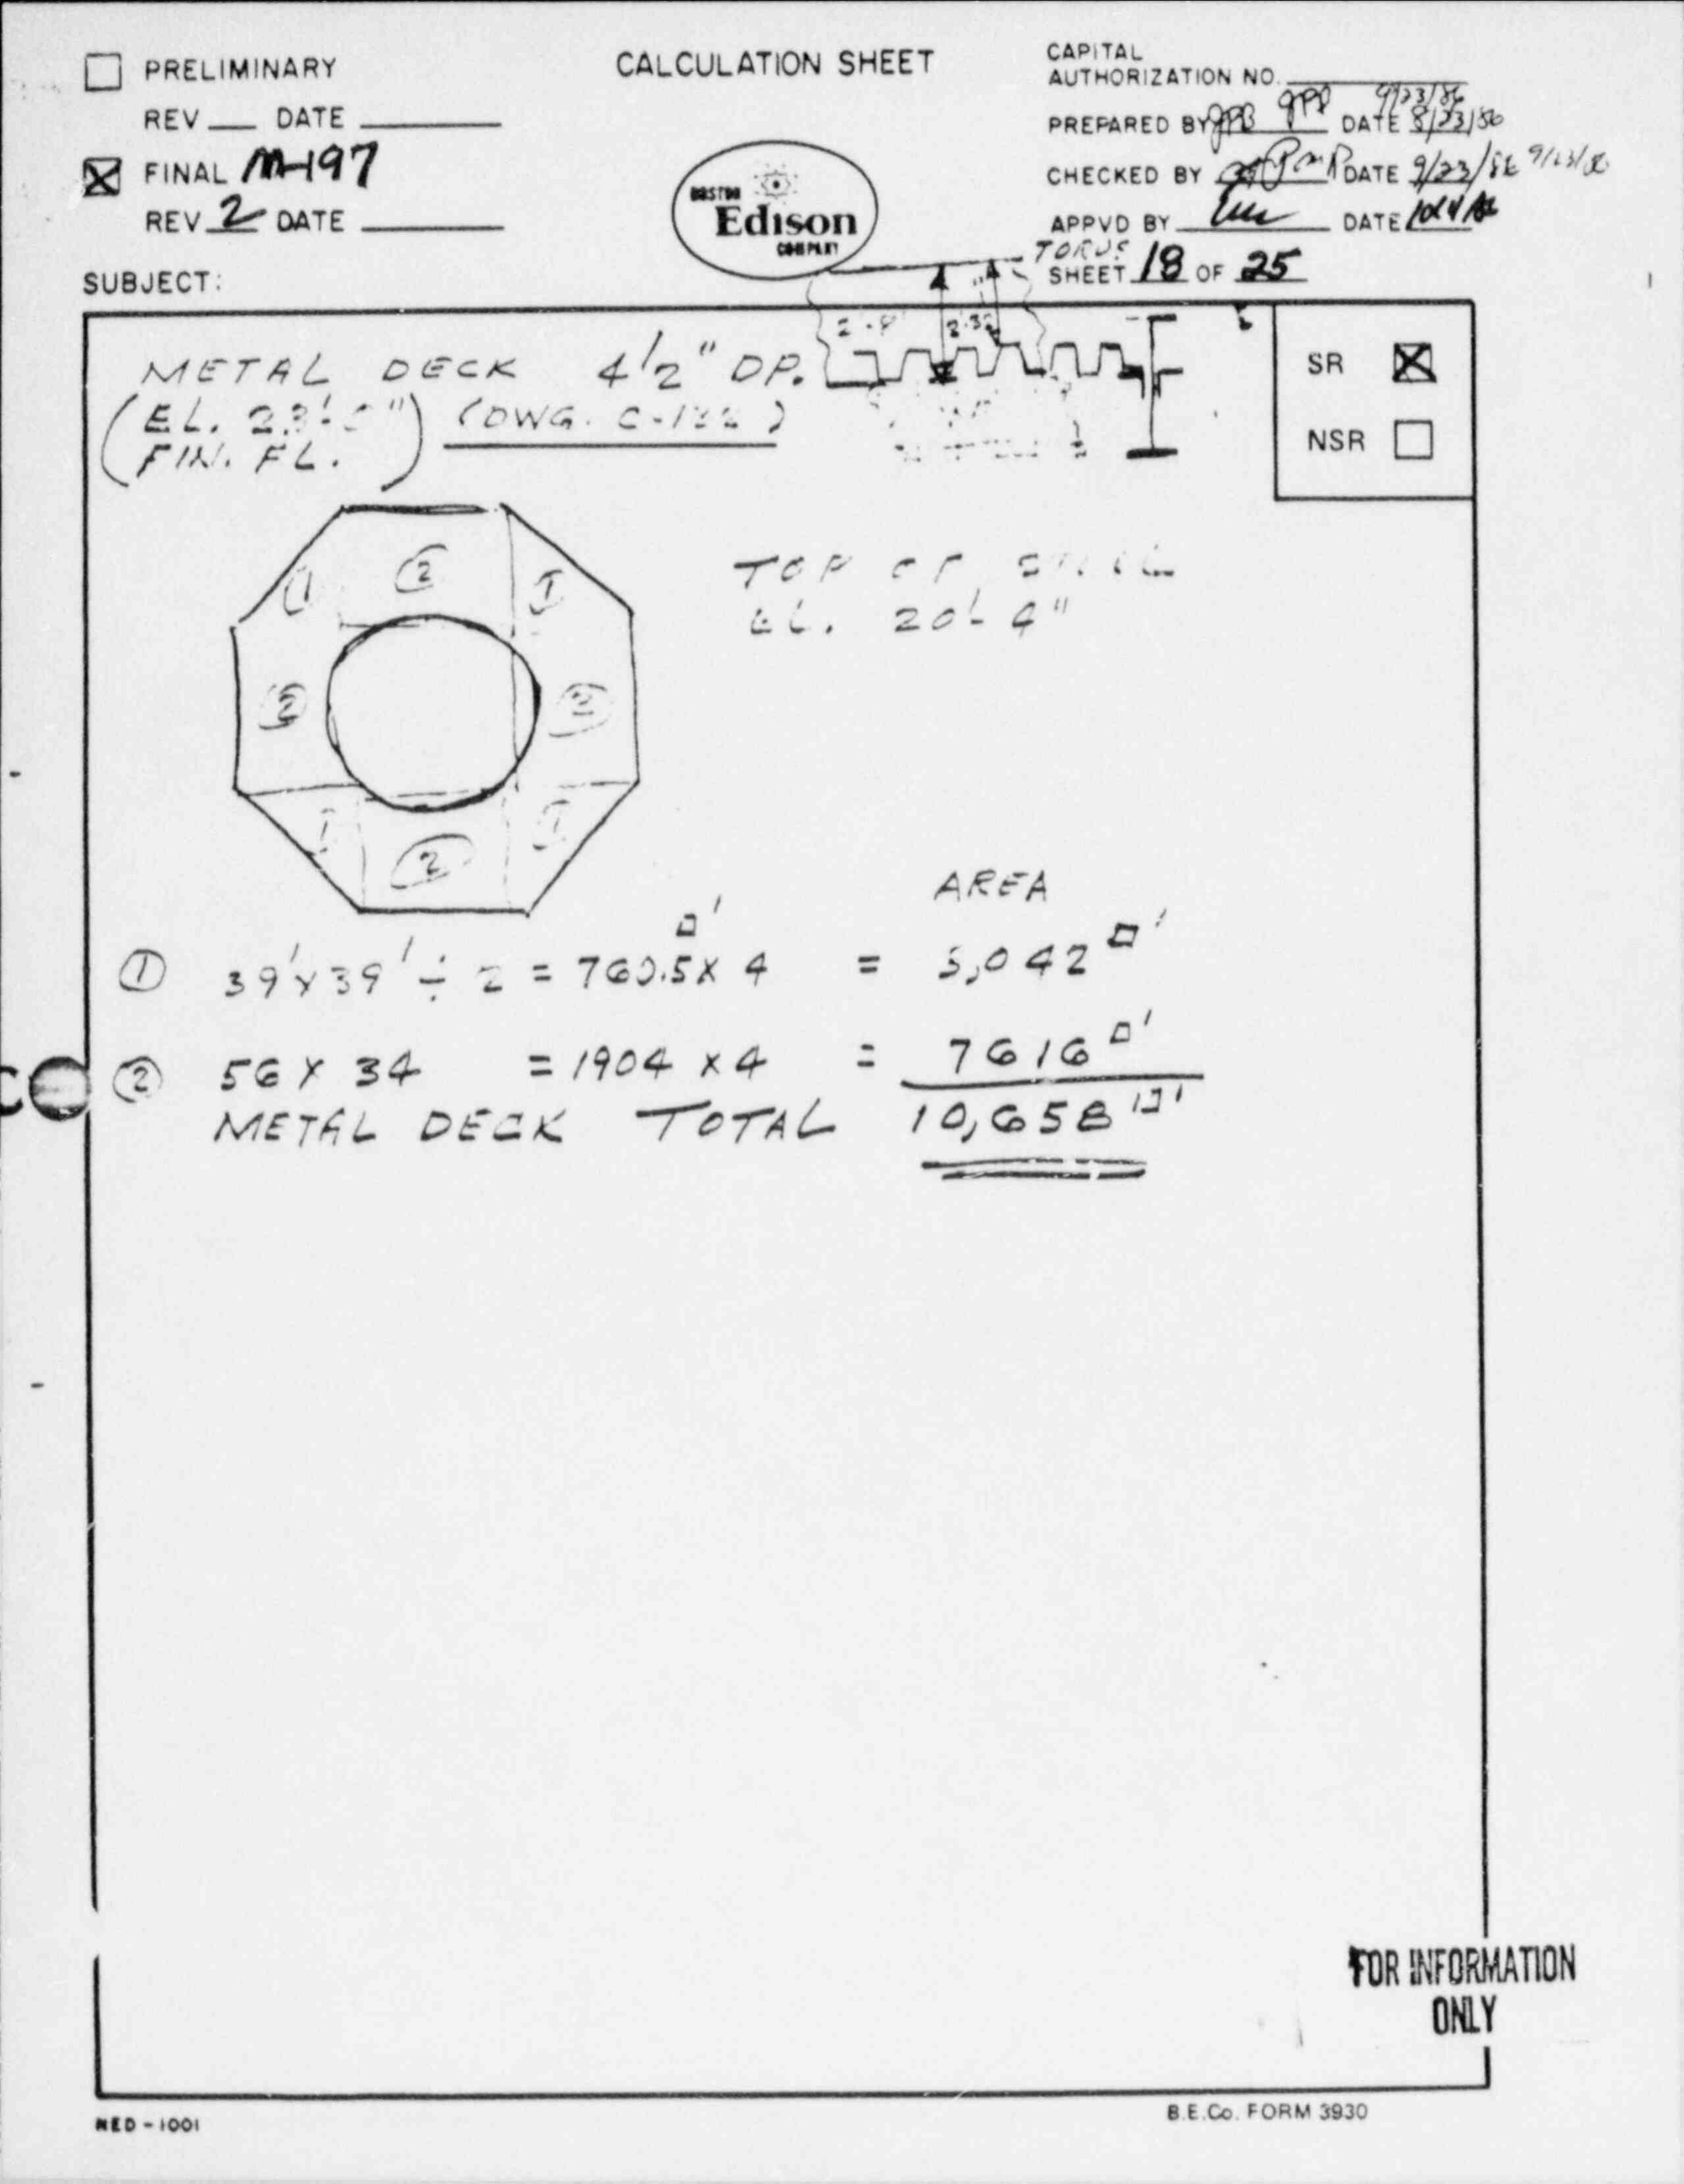 PRELIMINARY
REV ___ DATE ___
FINAL M-197
REV 2 DATE ___
SUBJECT:
CALCULATION SHEET
BOSTON
Edison
COMPANY
CAPITAL
AUTHORIZATION NO.
PREPARED BY JPB DATE 9/23/86 8/23/86
CHECKED BY DATE 9/23/86 9/23/86
APPVD BY DATE
TORUS
SHEET 18 OF 25
SR
NSR
METAL DECK 4 1/2" DP.
(EL. FIN. FL.) (DWG.
TOP OF STEEL
EL. 20'-4"
1 2 1
2 2
1 2 1
AREA
① 39' x 39' ÷ 2 = 760.5 □' x 4 = 3,042 □'
② 56 x 34 = 1904 x 4 = 7616 □'
METAL DECK TOTAL 10,658 □'
FOR INFORMATION
ONLY
NED-1001
B.E.Co. FORM 3930